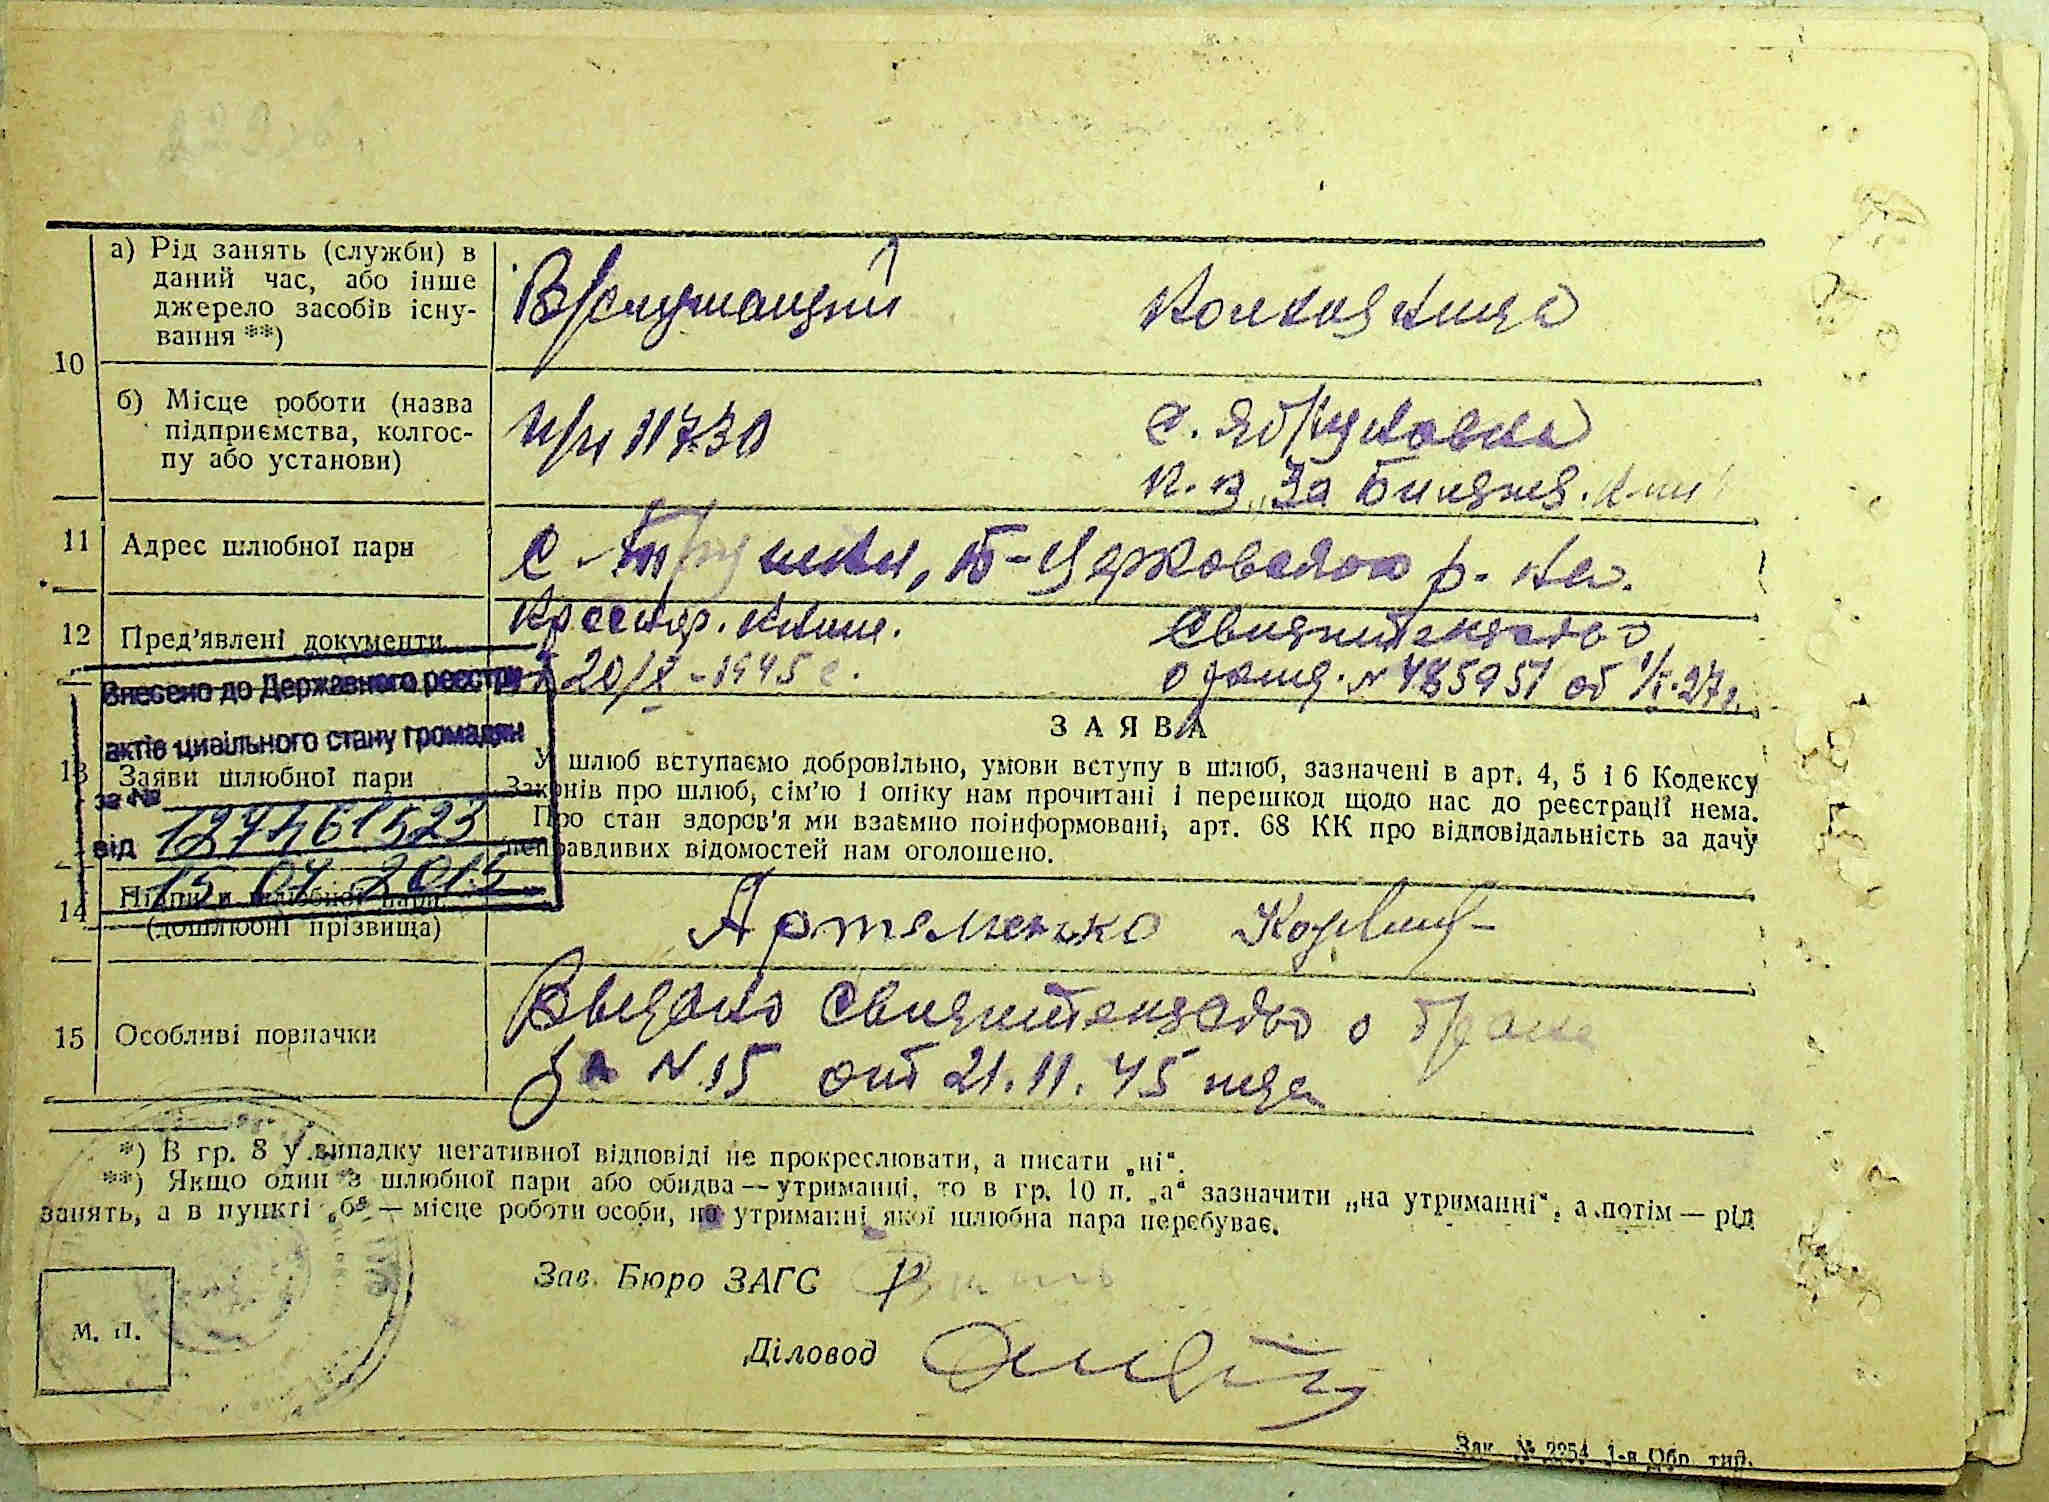 а) Рід занять (служби) в
даний час, або інше
джерело засобів існу-
вання **)
В/служащий
Колхозница
10
б) Місце роботи (назва
підприємства, колгос-
пу або установи)
п/п 11730
с.
к-з „За
11
Адрес шлюбної пари
с. Трушки, Б-Церковского р-на.
12
Пред'явлені документи
Красноар. книж.
20/X - 1945 г.
Свидетельство
о рожд. №485951 от
Внесено до Державного реєстру
актів цивільного стану громадян
за №
127461523
від
15 04 2015
13
Заяви шлюбної пари
ЗАЯВА
У шлюб вступаємо добровільно, умови вступу в шлюб, зазначені в арт. 4, 5 і 6 Кодексу
Законів про шлюб, сім'ю і опіку нам прочитані і перешкод щодо нас до реєстрації нема.
Про стан здоров'я ми взаємно поінформовані, арт. 68 КК про відповідальність за дачу
неправдивих відомостей нам оголошено.
14
Підписи шлюбної пари
(дошлюбні прізвища)
Артеменко
15
Особливі повначки
Выдано свидетельство о браке
за №15 от 21.11.45 года
*) В гр. 8 у випадку негативної відповіді не прокреслювати, а писати „ні“.
**) Якщо один з шлюбної пари або обидва — утриманці, то в гр. 10 п. „а“ зазначити „на утриманні“, а потім — рід
занять, а в пункті „б“ — місце роботи особи, на утриманні якої шлюбна пара перебуває.
Зав. Бюро ЗАГС
М. П.
Діловод
Зак. № 2254 1-я Обр. тип.